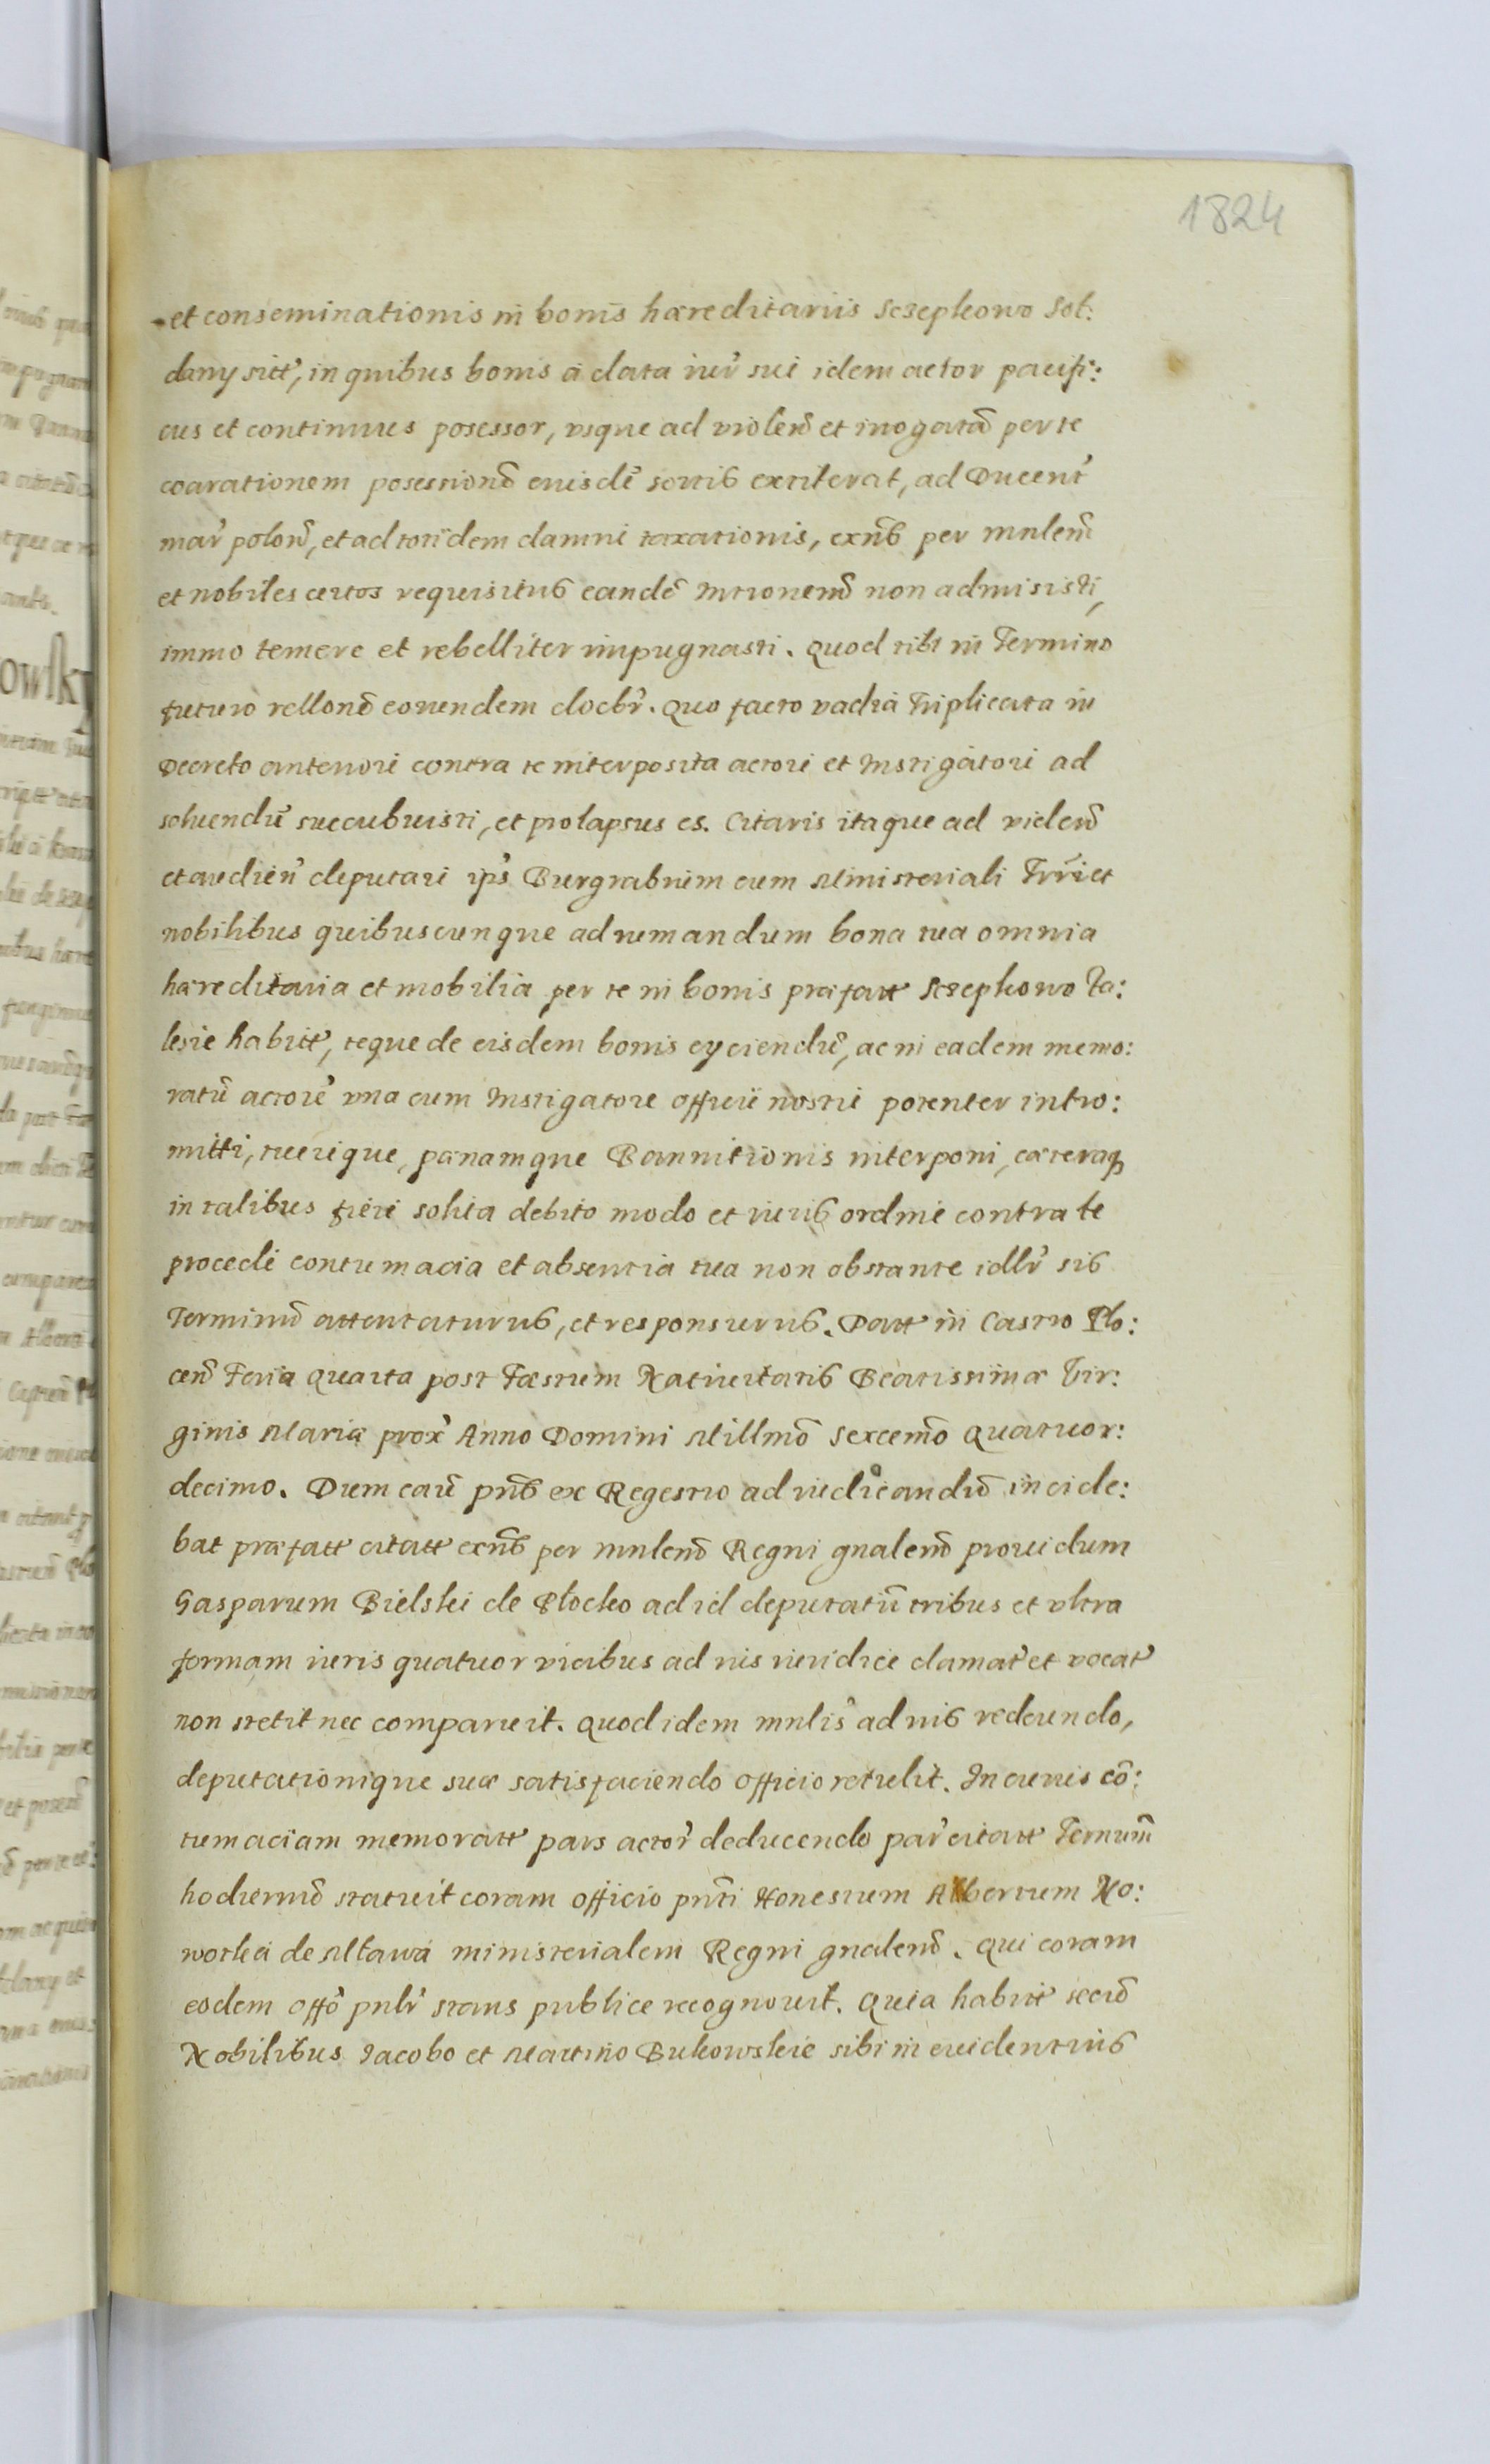 1824
et conseminationis in bonis hæreditariis Sczepkowo Sol:
dany sitt, in quibus bonis a data iur̃ sui idem actor pacifi:
cus et continuus posessor, vsque ad violen̄ et inogatā per te
coarationem posessionē euisdē sortis extiterat, ad Ducent̃
mar̃ polon̄, et ad totidem damni taxationis, exñs per mnlem̄
et nobiles certos requisitus eandē Intionem̄ non admisisti,
immo temere et rebelliter impugnasti. Quod tibi in Termino
futuro rellonē eorundem docbr̃. Quo facto vadia Triplicata in
Decreto anteriori contra te interposita actori et Instigatori ad
soluendū succubuisti, et prolapsus es. Citaris itaque ad viden̄
et audien̄ deputari ips̃ Burgrabium cum Ministeriali Trri et
nobilibus quibuscunque ad rumandum bona tua omnia
hæreditaria et mobilia per te in bonis præfatt Sczepkowo Za:
lesie habitt, teque de eisdem bonis eyciendū, ac in eadem memo:
ratū actorē vna cum Instigatore officii nostri potenter intro:
mitti, tuerique, pænamque Bannitionis interponi, cæteraq
in talibus fieri solita debito modo et iuris ordine contra te
procedi contumacia et absentia tua non obstante idlr̃ sis
Terminū attentaturus, et responsurus. Datt in Castro Plo:
cen̄ Feria Quarta post Fæstum Natiuitatis Beatissimæ Vir:
ginis Mariæ prox̃ Anno Domini Millmō Sexcemō Quatuor:
decimo. Dum cau̅ pñs ex Regestro ad iudicandū incide:
bat præfatt citatt exñs per mnlem̄ Regni gnalem̄ prouidum
Gasparum Bielski de Plocko ad id deputatū tribus et vltra
formam iuris quatuor vicibus ad ius iuridice clamat̃ et vocat̃
non stetit nec comparuit. Quod idem mnlis̃ ad nis redeundo,
deputationique suæ satisfaciendo officio retulit. In cuius cō:
tumaciam memoratt pars actor̃ deducendo par̃ citatt Termin̄
hodiernū statuit coram officio pñti Honestum Albertum No:
wotka de Mława ministerialem Regni gnalem̄. Qui coram
eodem offō pnlr̃ stans publice recognouit. Quia habitt secū
Nobilibus Iacobo et Martino Bukowskie sibi in euidentius